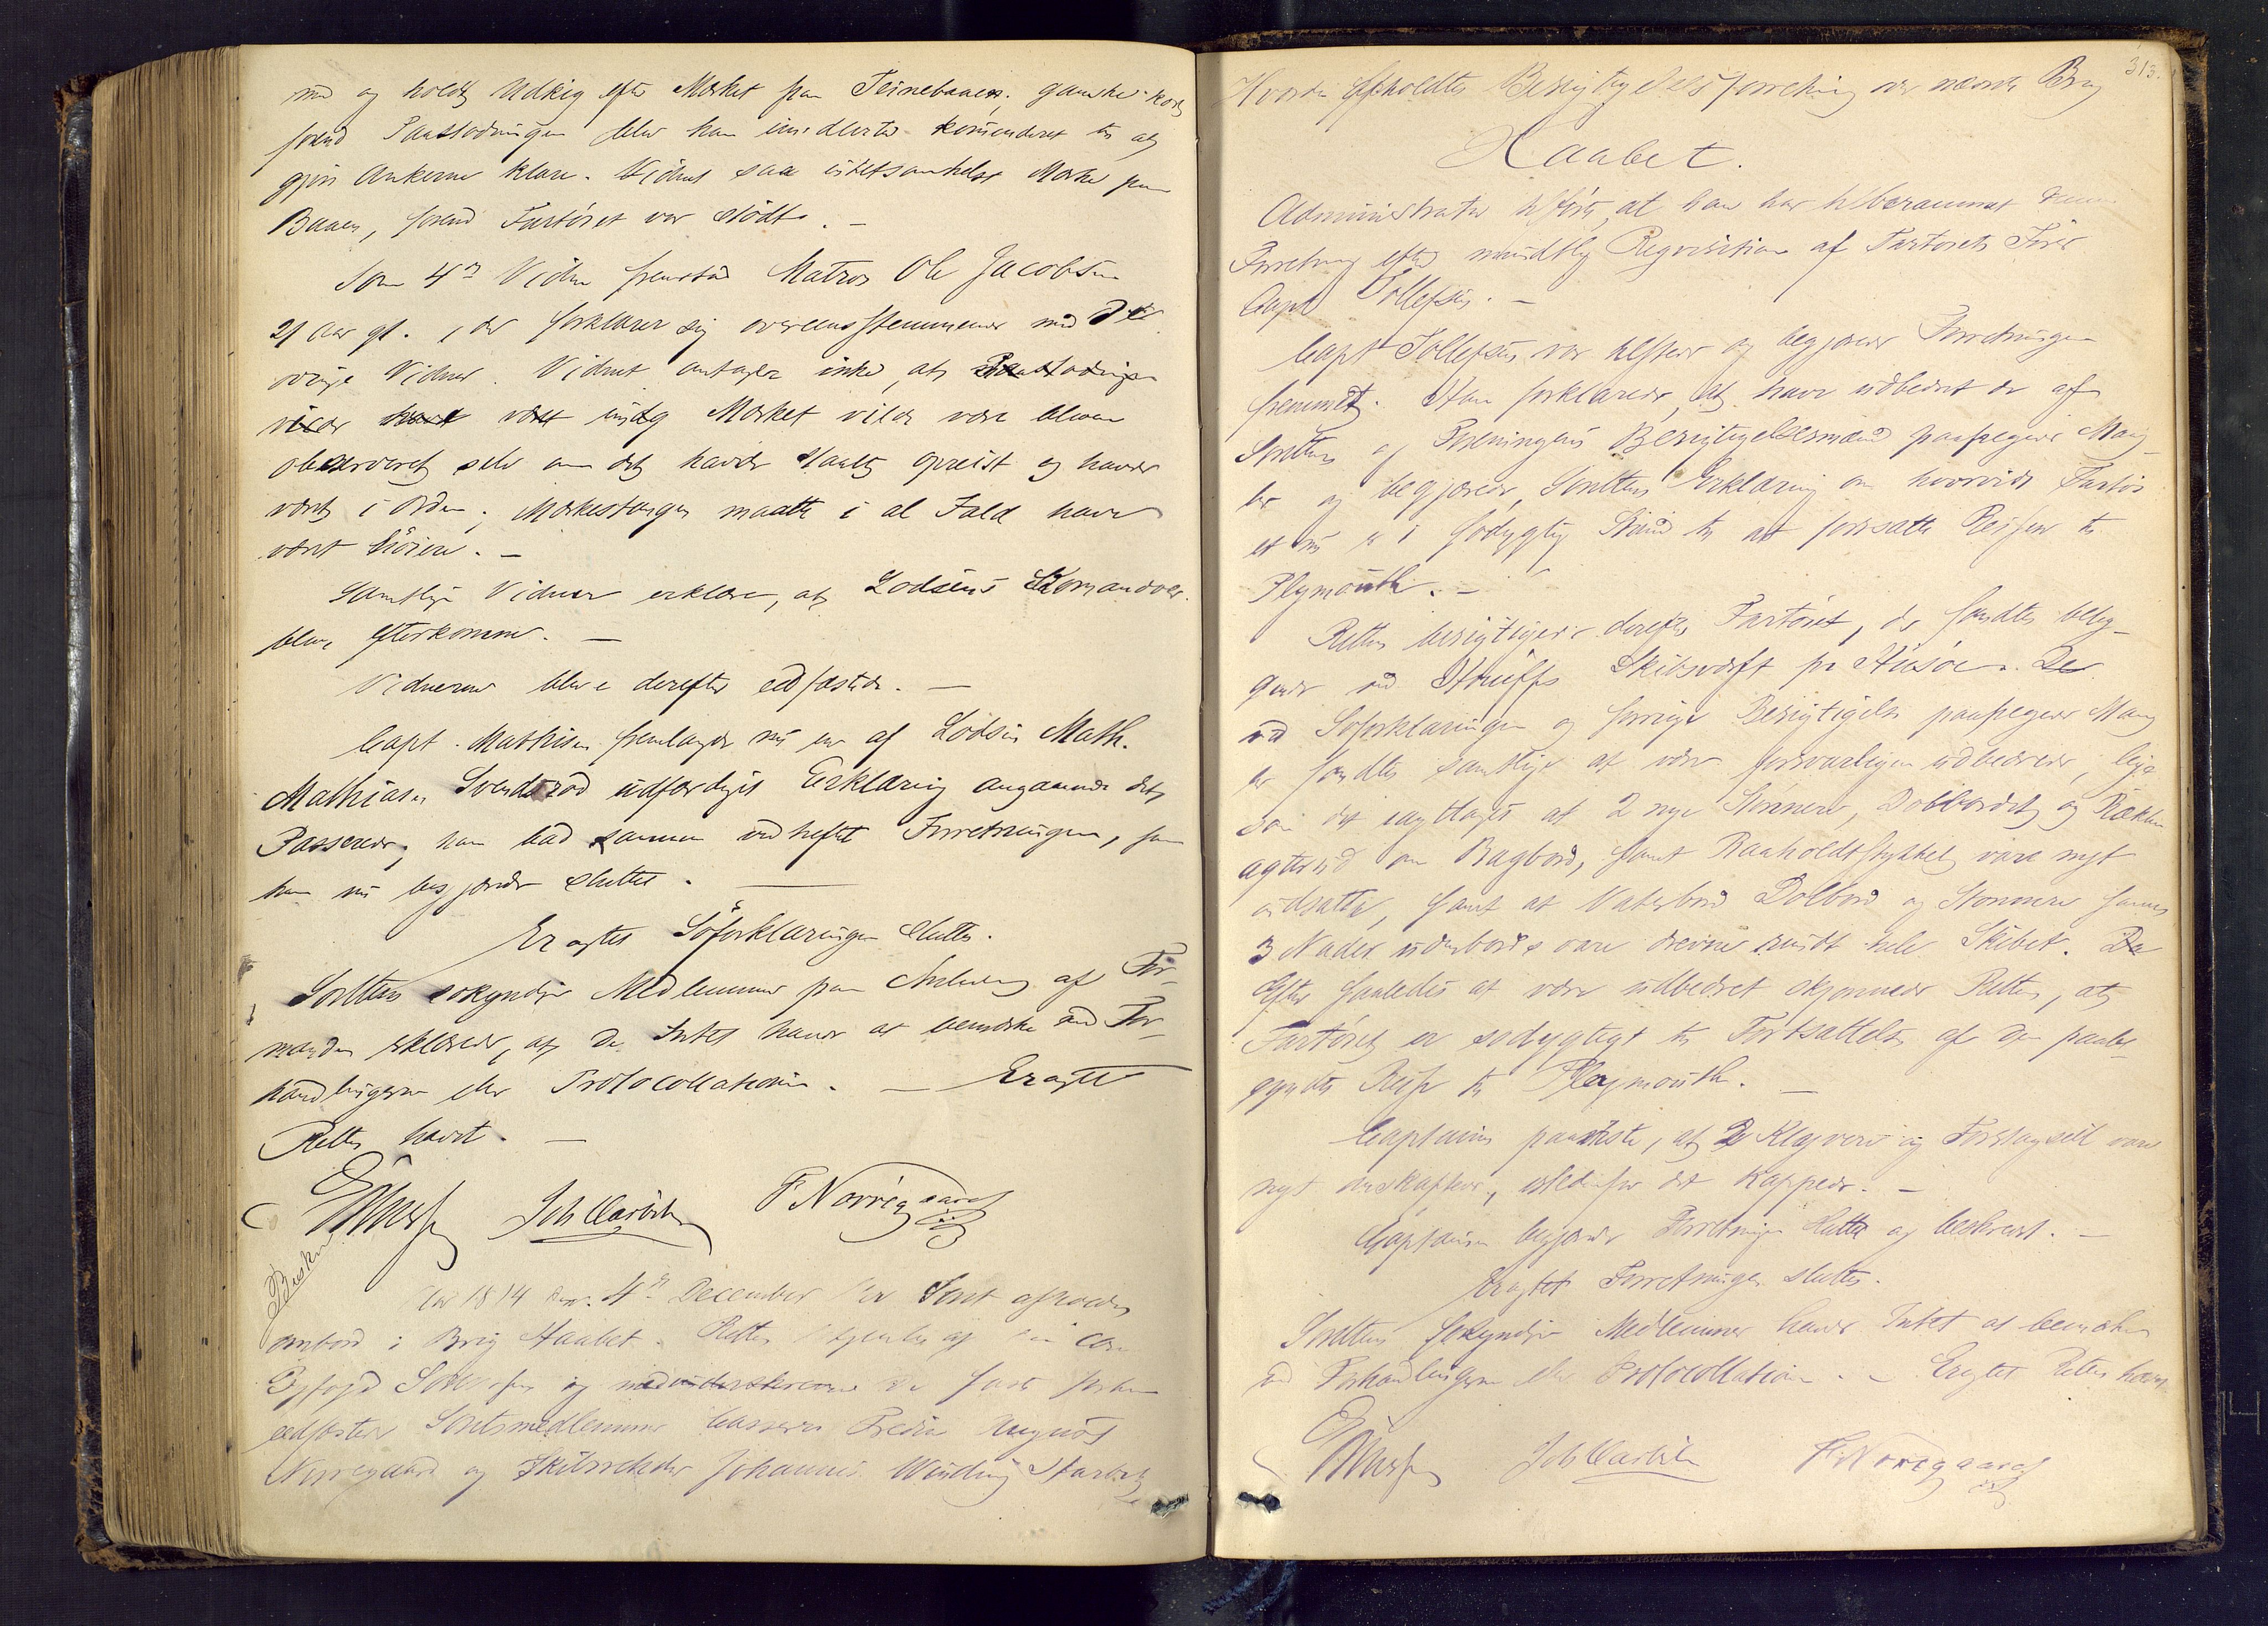 og holdt Udkig efter Mærket paa Teinebaaen; ganske kort
førend Paastødningen blev han imidlertid komanderet til at
gjøre Ankerne klare. Vidnet saa intetsomhelst Mærke paa
Baaen, førend Fartøiet var stødt. —
Som 4de Vidne fremstod Matros Ole Jacobsen
21 Aar gl., der forklarer sig overensstemmende med de
øvrige Vidner. Vidnet antager ikke, at
Mærket vilde være bleven
observeret selv om det havde staaet opreist og havde
været i Orden; Mærkestangen maatte i al Fald have
været høiere. —
Samtlige Vidner erklære, at Lodsens Komandoer
bleve efterkomne. —
Vidnerne bleve derefter edfæstede. —
Capt. Mathisen fremlagde nu en af Lodsen Math.
Mathiasen Svendsrød udfærdiget Erklæring angaaende det
Passerede, han bad samme vedheftet Forretningen, som
han nu begjærede sluttet. —
Eragtet Søforklaringen sluttes.
Sørettens søkyndige Medlemmer paa Anledning af For-
manden erklærede, at de Intet havde at bemærke ved For-
handlingerne eller Protocollationen. — Eragtet
Retten hævet. —
Joh Carbch F Norregaard
Beskr
Aar 1874 den 4de December blev Søret afholdt
ombord i Brig Haabet. Retten af
Byfogd og medunderskrevne de faste forhen
edfæstede Søretsmedlemmer August
Norregaard og Skibsreder Johannes Winding
313.
Hvorda afholdtes Besigtigelsesforretning over norsk Brig
Haabet.
Administrator tilførte, at han har berammet denne
Forretning efter mundtlig Reqvisition af Fartøiets Fører
Capt Tollefsen. —
Capt Tollefsen var tilstede og begjærede Forretningen
fremmet. Han forklarede, at have udbedret de af
Søretten og Foreningens Besigtigelsesmænd paapegede Mang-
ler og begjærede Sørettens Erklæring om hvorvidt Fartøi-
et nu er i sødygtig Stand til at fortsætte Reisen til
Plymouth. —
Retten besigtigede derefter Fartøiet, der fandtes belig-
gende ved Skibsværft paa Husøen. De
ved Søforklaringen og forrige Besigtigelse paapegede Mang-
ler fandtes samtlige at være forsvarligen udbedrede, lige
som det iagttages at 2 nye Støttere, Dolbordet og Rækken
agterud om Bagbord, samt Raaholdtstykket vare nyt
indsatte, samt at Vaterbord Dolbord og Stonnere samt
3 Nader udenbords vare drevne rundt hele Skibet. De
Efter saaledes at være udbedret skjønnede Retten, at
Fartøiet er sødygtigt til Fortsættelse af den paabe-
gyndte Reise til Plymouth. —
Captainen paaviste, at 2 Klyvere og Forstagseil vare
nyt anskaffede, istedenfor det kappede. —
Captainen begjærede Forretningen sluttet og beskrevet. —
Eragtet Forretningen sluttes.
Sørettens søkyndige Medlemmer havde Intet at bemærke
ved Forhandlingerne eller Protocollationen. — Eragtet Retten hævet
Joh Carbch F. Norregaard